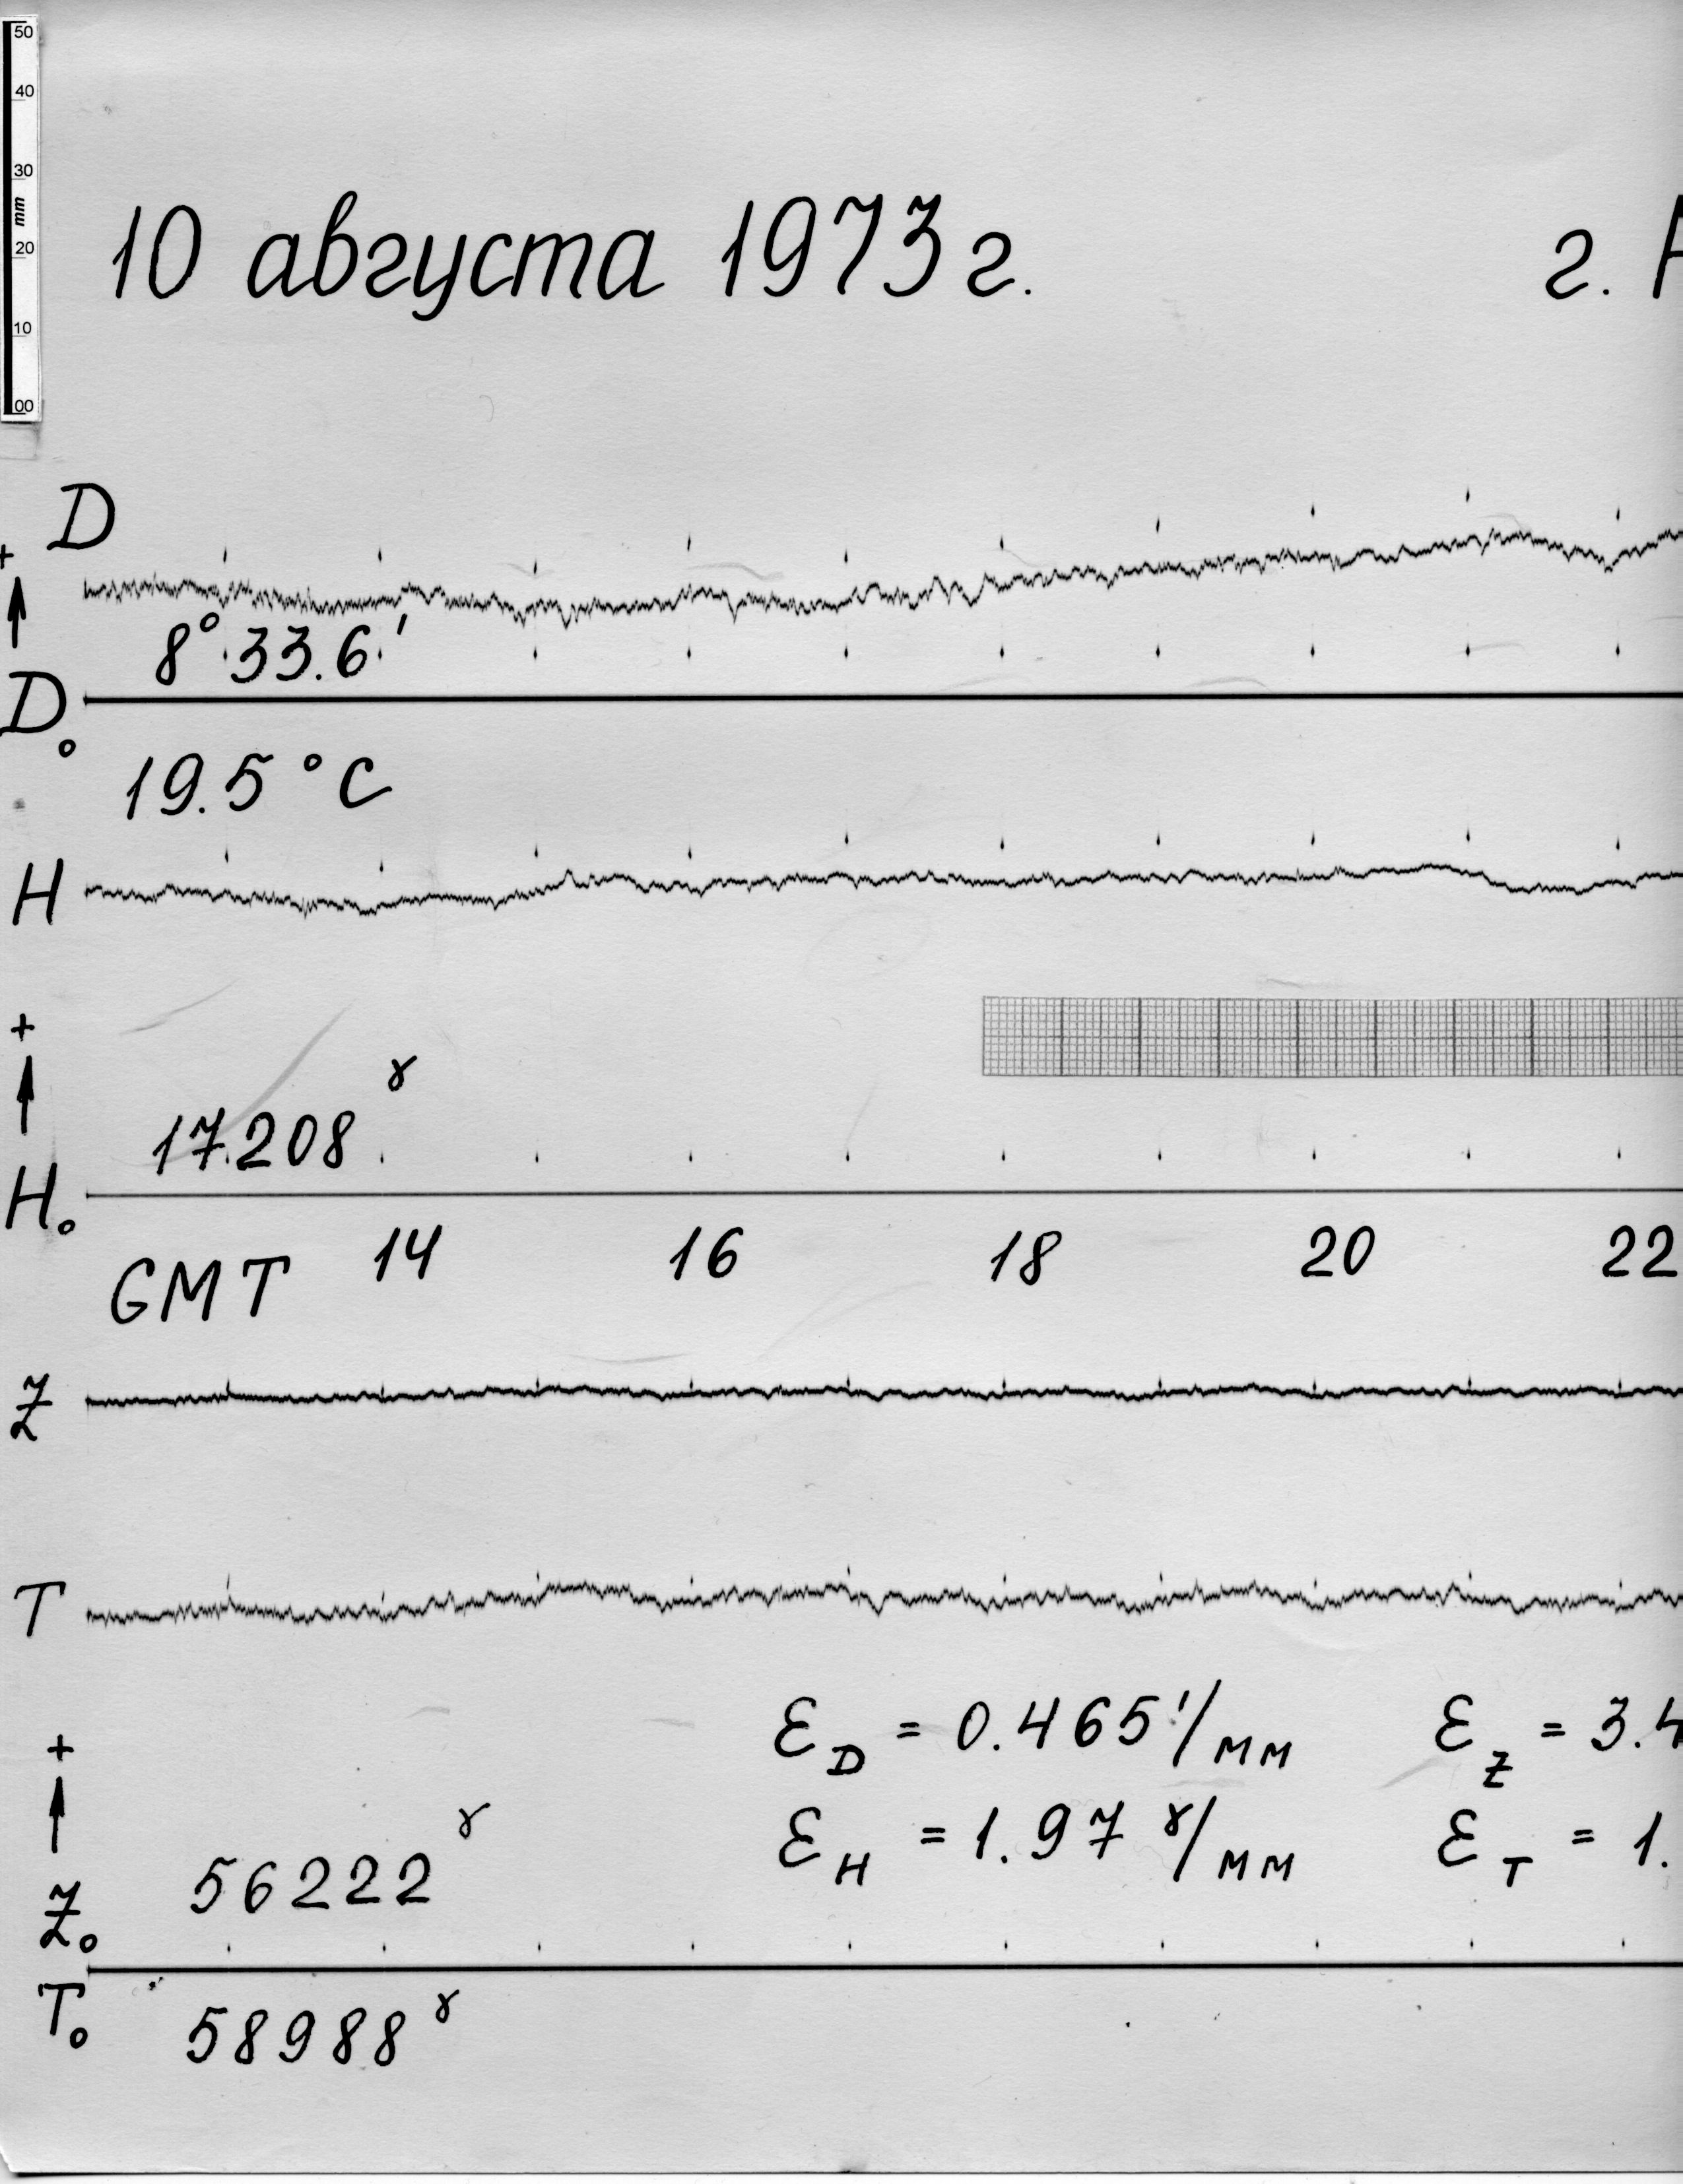 50
40
30
mm
20
10
00
10 августа 1973 г.
г.
D
+
8° 33.6'
D₀
19.5 °C
H
+
17.208 γ
H₀
GMT 14 16 18 20 22
Z
T
ε_D = 0.465'/мм ε_Z = 3.4
ε_H = 1.97 γ/мм ε_T = 1.
+
56222 γ
Z₀
T₀
58988 γ